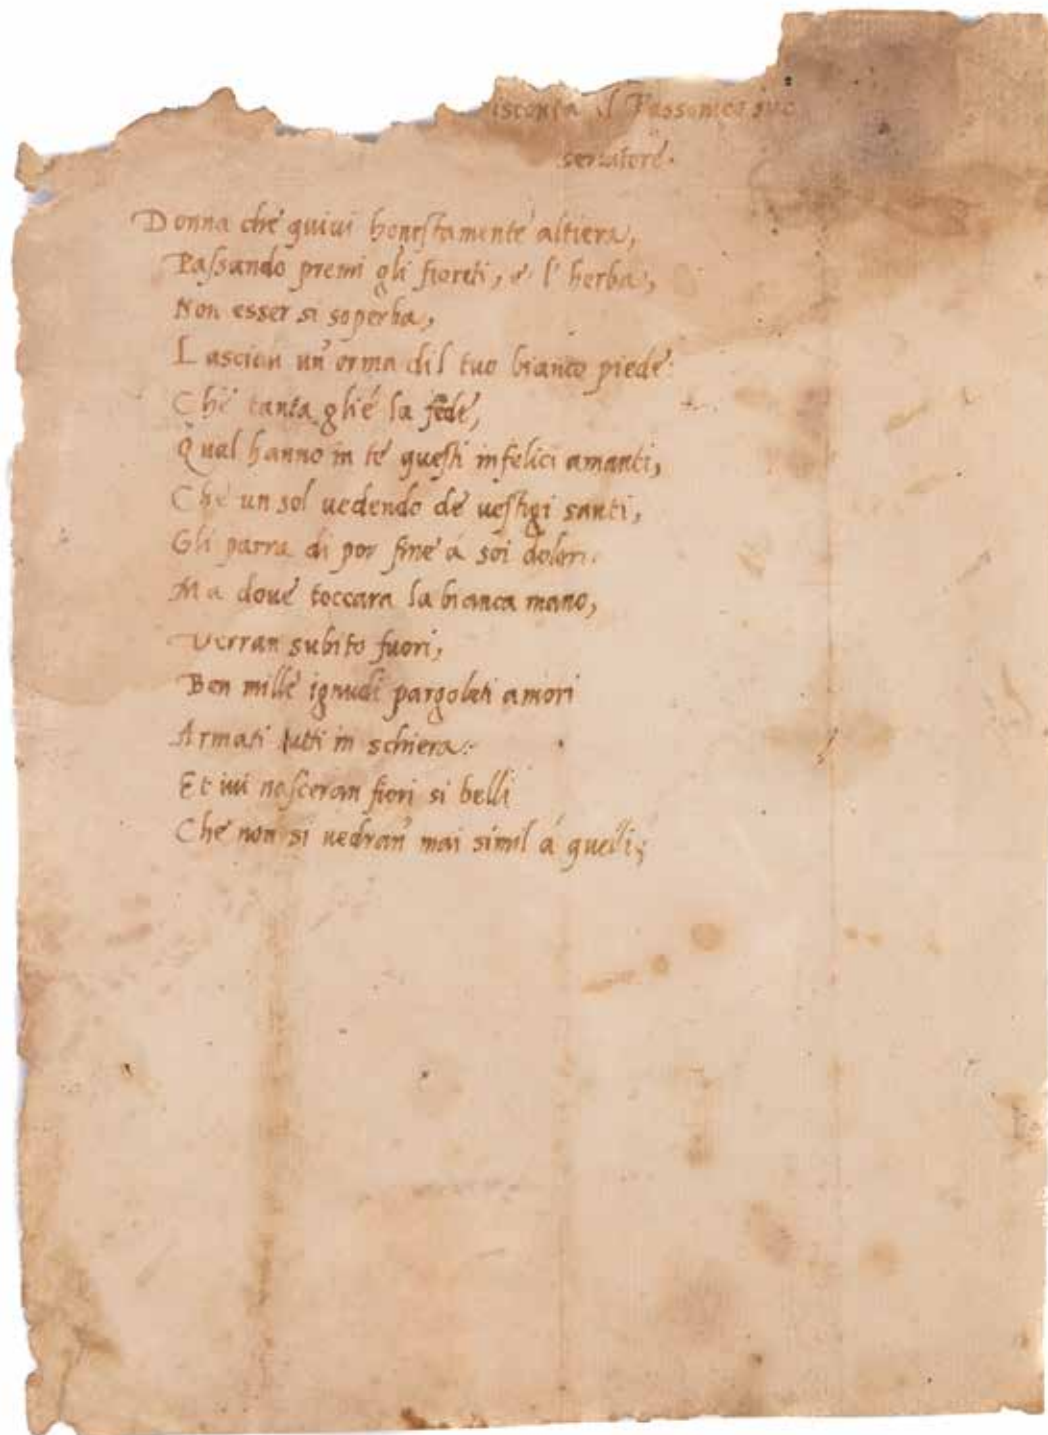 il Passonico suo
seruatore.
Donna che quiui honestamente altiera,
Passando premi gli fioreti, e l'herba,
Non esser si soperba,
Lasciau un' orma dil tuo bianco piede:
Che tanta glié la fede,
Qual hanno in te questi infelici amanti,
Che un sol uedendo de uestigi santi,
Gli parra di por fine á soi dolori.
Ma doue toccara la bianca mano,
Verran subito fuori,
Ben mille ignudi pargoleti amori
Armati tutti in schiera:
Et iui nasceran fiori si belli
Che non si uedran mai simil á quelli;